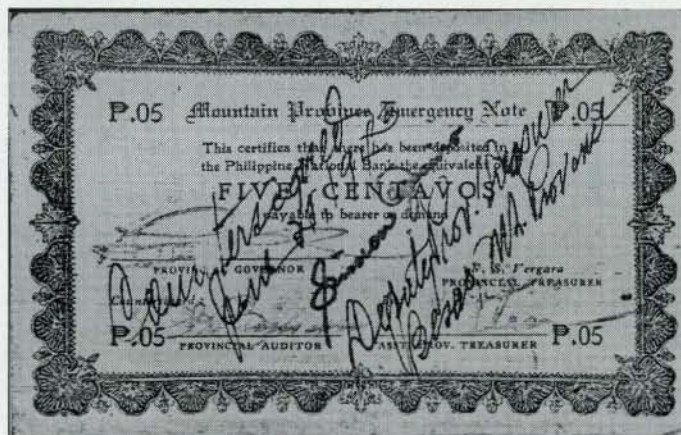 ₱.05 Mountain Province Emergency Note ₱.05
This certifies that there has been deposited in
the Philippine National Bank the equivalent of
FIVE CENTAVOS
payable to bearer on demand
PROVINCIAL GOVERNOR
V. S. Vergara
PROVINCIAL TREASURER
Countersigned:
₱.05 ₱.05
PROVINCIAL AUDITOR ASST. PROV. TREASURER
Countersigned
Simon
Deputy Prov. Treasurer
Mt. Province